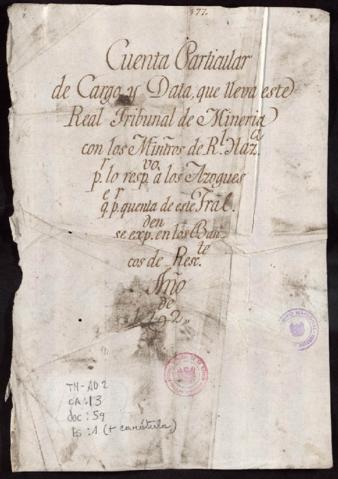 177.
Cuenta Particular
de Cargo y Data, que lleva este
Real Tribunal de Mineria
con los Miñros de Rl. Hazda.
pr. lo respvo. a los Azogues
qe. pr. quenta de este Tral.
se expden. en los Ban-
cos de Rescte.
Año
de
1792,,
TM-AD2
CA:13
doc:59
fs:1 (+ carátula)